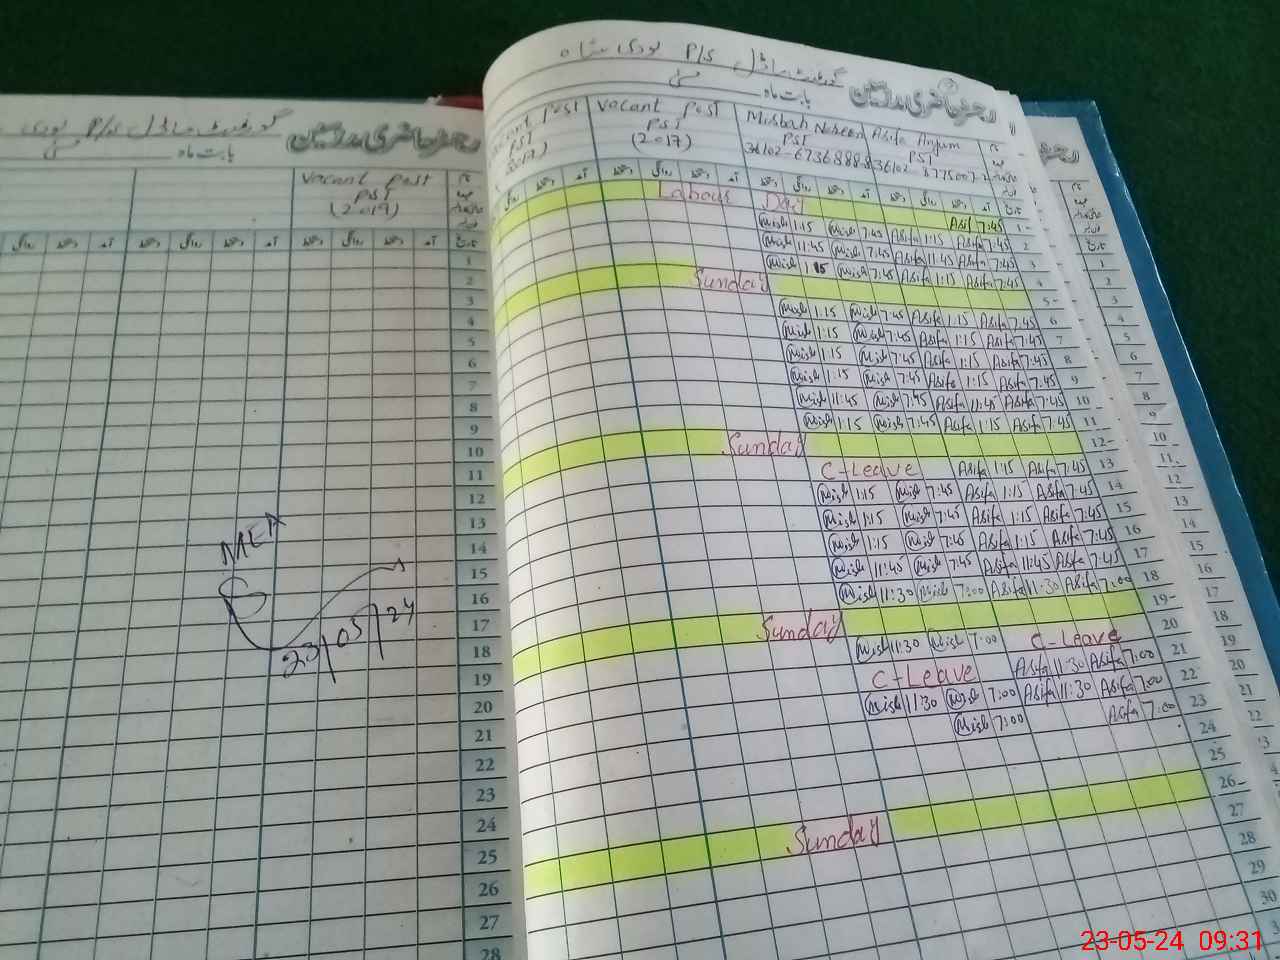 رجسٹر حاضری مدرسین
گورنمنٹ ماڈل P/S
بابت ماہ
vacant post
PST
(2019)
آمد دستخط روانگی
1
2
3
4
5
6
7
8
9
10
11
12
13
14
15
16
17
18
19
20
21
22
23
24
25
26
27
28
MEA
23/05/24
رجسٹر حاضری مدرسین
گورنمنٹ ماڈل P/S لودی شاہ
بابت ماہ مئی
Post Vacant Post Misbah Noreen Asifa Anjum
PST PST PST PST
2017) (2017)
Labour Day
Asif 7:45 1-
Misb 1:15 Misb 7:45 Asifa 1:15 Asifa 7:45 2
Misb 11:45 Misb 7:45 Asifa 11:45 Asifa 7:45 3
Misb 1:15 Misb 7:45 Asifa 1:15 Asifa 7:45 4
Sunday 5-
Misb 1:15 Misb 7:45 Asifa 1:15 Asifa 7:45 6
Misb 1:15 Misb 7:45 Asifa 1:15 Asifa 7:45 7
Misb 1:15 Misb 7:45 Asifa 1:15 Asifa 7:45 8
Misb 1:15 Misb 7:45 Asifa 1:15 Asifa 7:45 9
Misb 11:45 Misb 7:45 Asifa 11:45 Asifa 7:45 10
Misb 1:15 Misb 7:45 Asifa 1:15 Asifa 7:45 11
Sunday 12-
C-Leave Asifa 1:15 Asifa 7:45 13
Misb 1:15 Misb 7:45 Asifa 1:15 Asifa 7:45 14
Misb 1:15 Misb 7:45 Asifa 1:15 Asifa 7:45 15
Misb 1:15 Misb 7:45 Asifa 1:15 Asifa 7:45 16
Misb 11:45 Misb 7:45 Asifa 11:45 Asifa 7:45 17
Misb 11:30 Misb 7:00 Asifa 11:30 Asifa 7:00 18
Sunday 19-
Misb 11:30 Misb 7:00 C-Leave 20
C-Leave Asifa 11:30 Asifa 7:00 21
Misb 11:30 Misb 7:00 Asifa 11:30 Asifa 7:00 22
Misb 7:00 Asifa 7:00 23
24
25
Sunday 26-
27
28
29
30
23-05-24 09:31